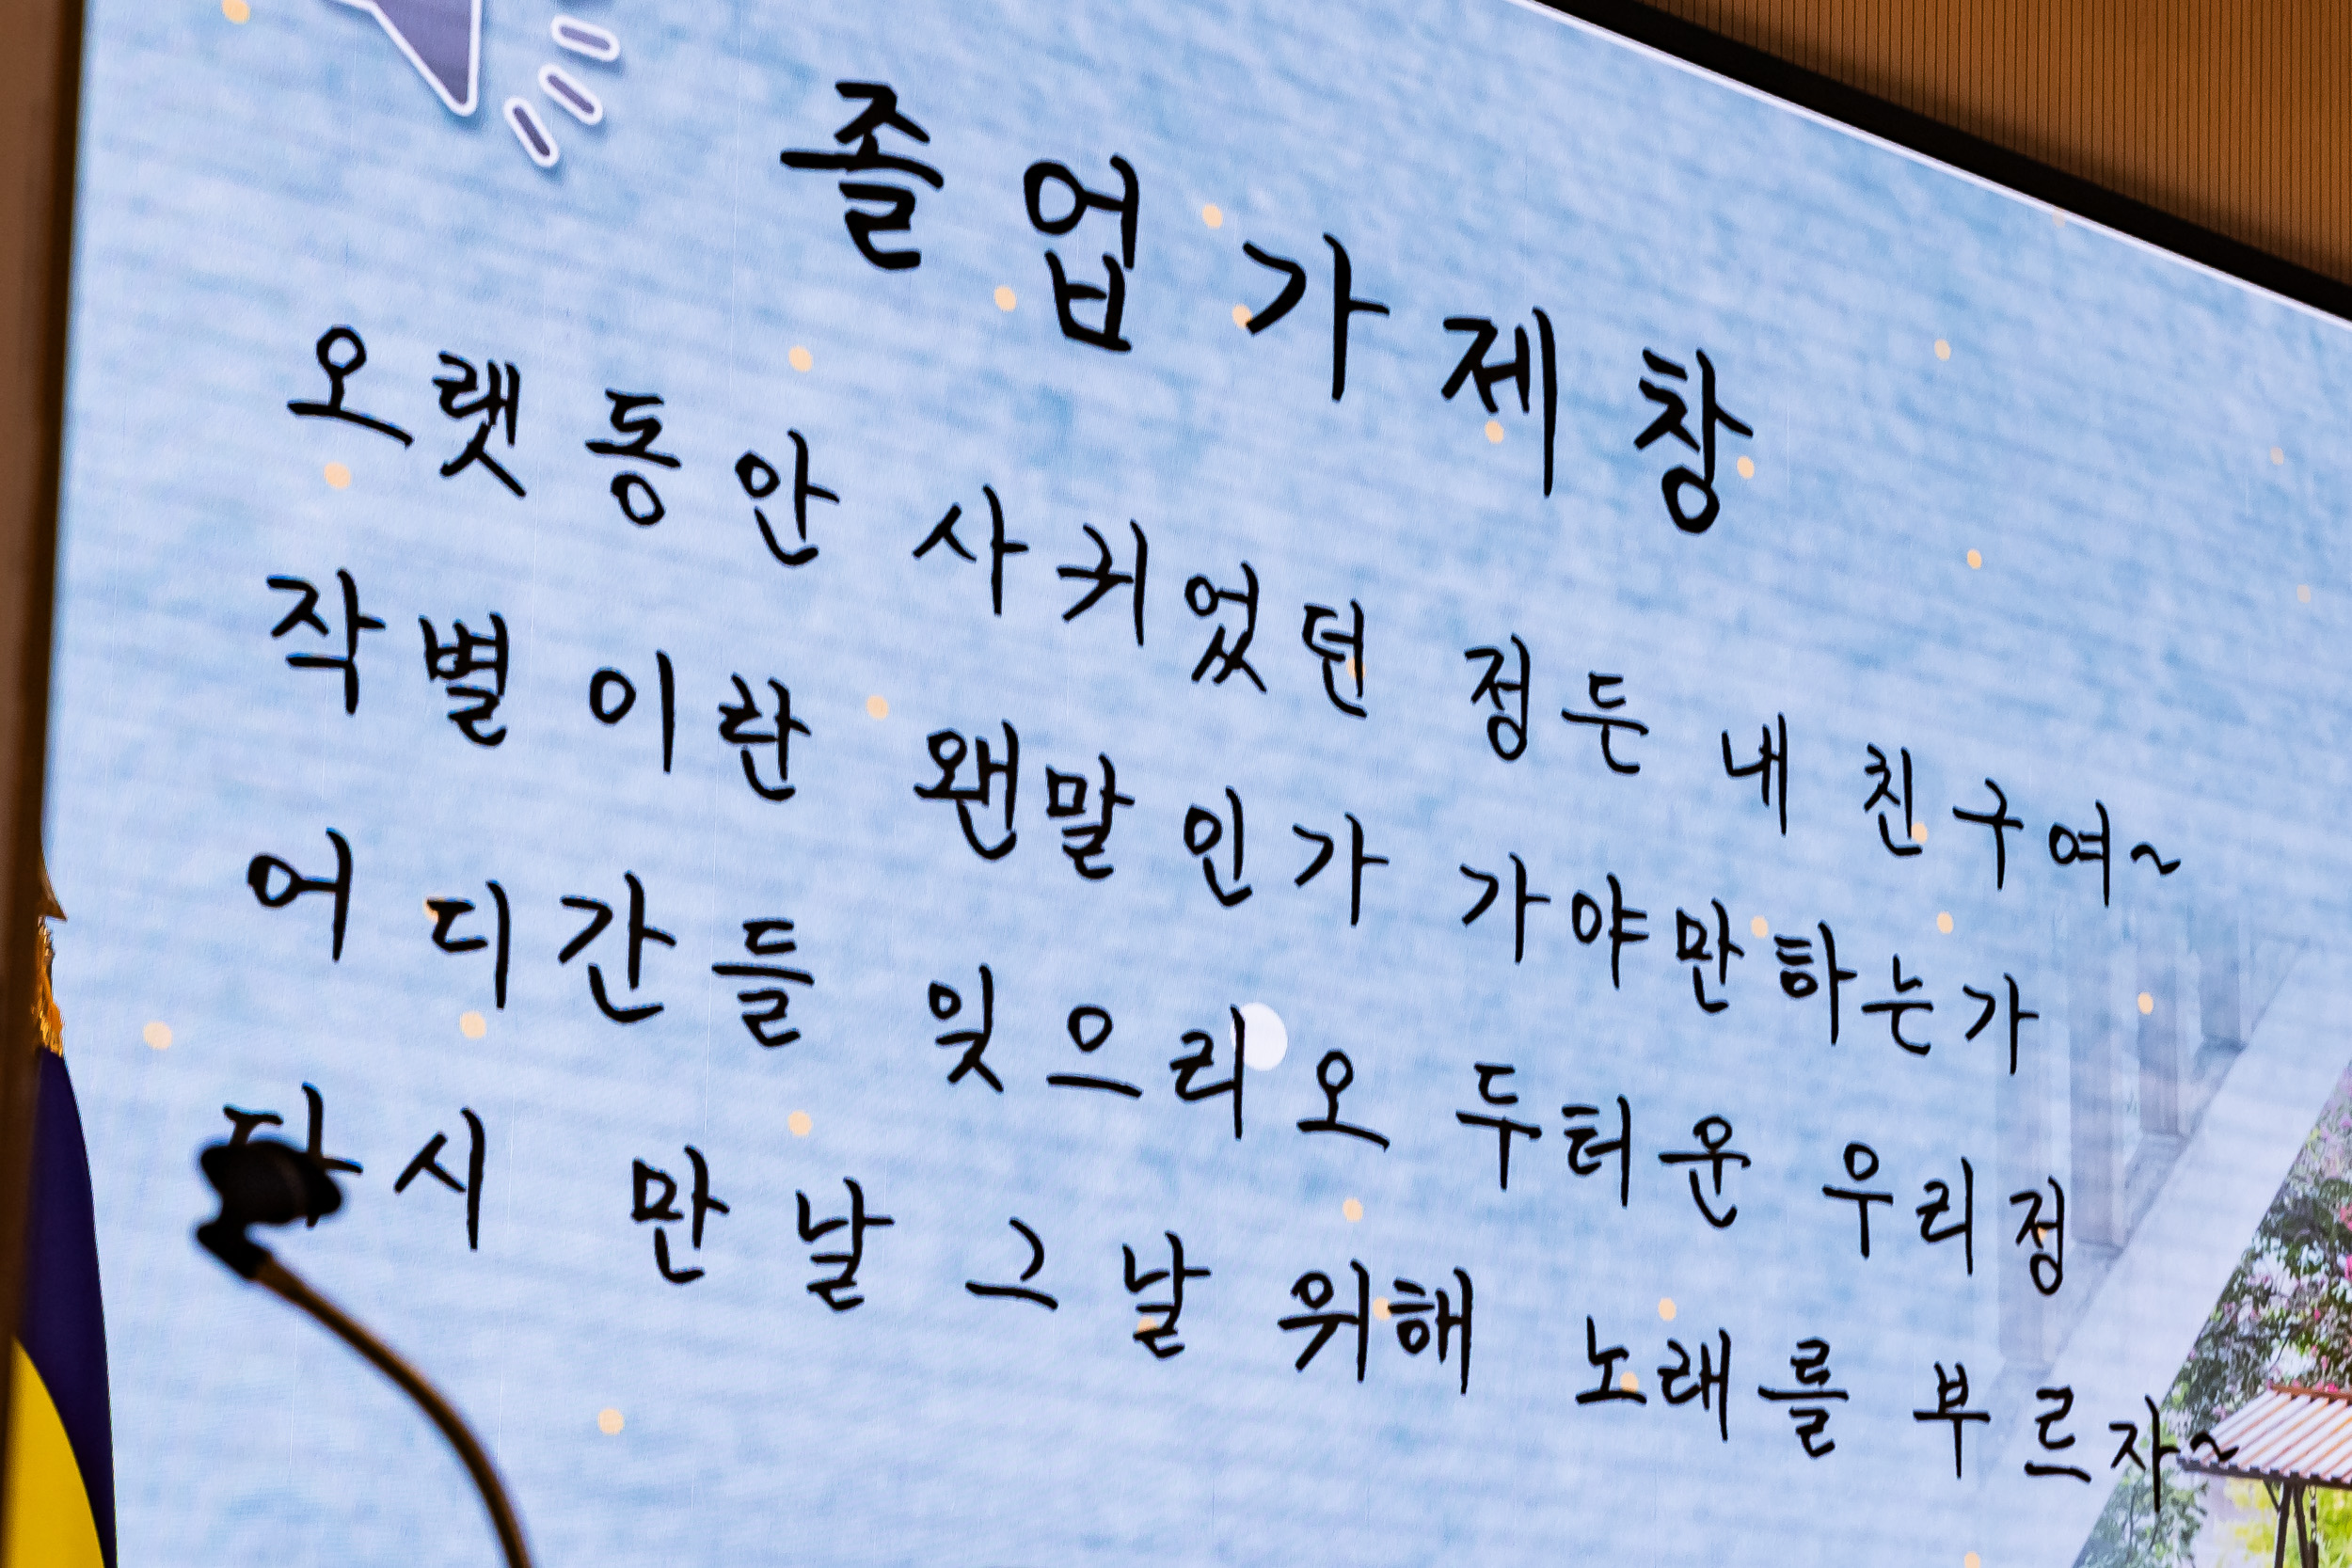 졸업가제창
오랫동안 사귀었던 정든 내 친구여~
작별이란 왠말인가 가야만하는가
어디간들 잊으리오 두터운 우리정
다시 만날 그날 위해 노래를 부르자~